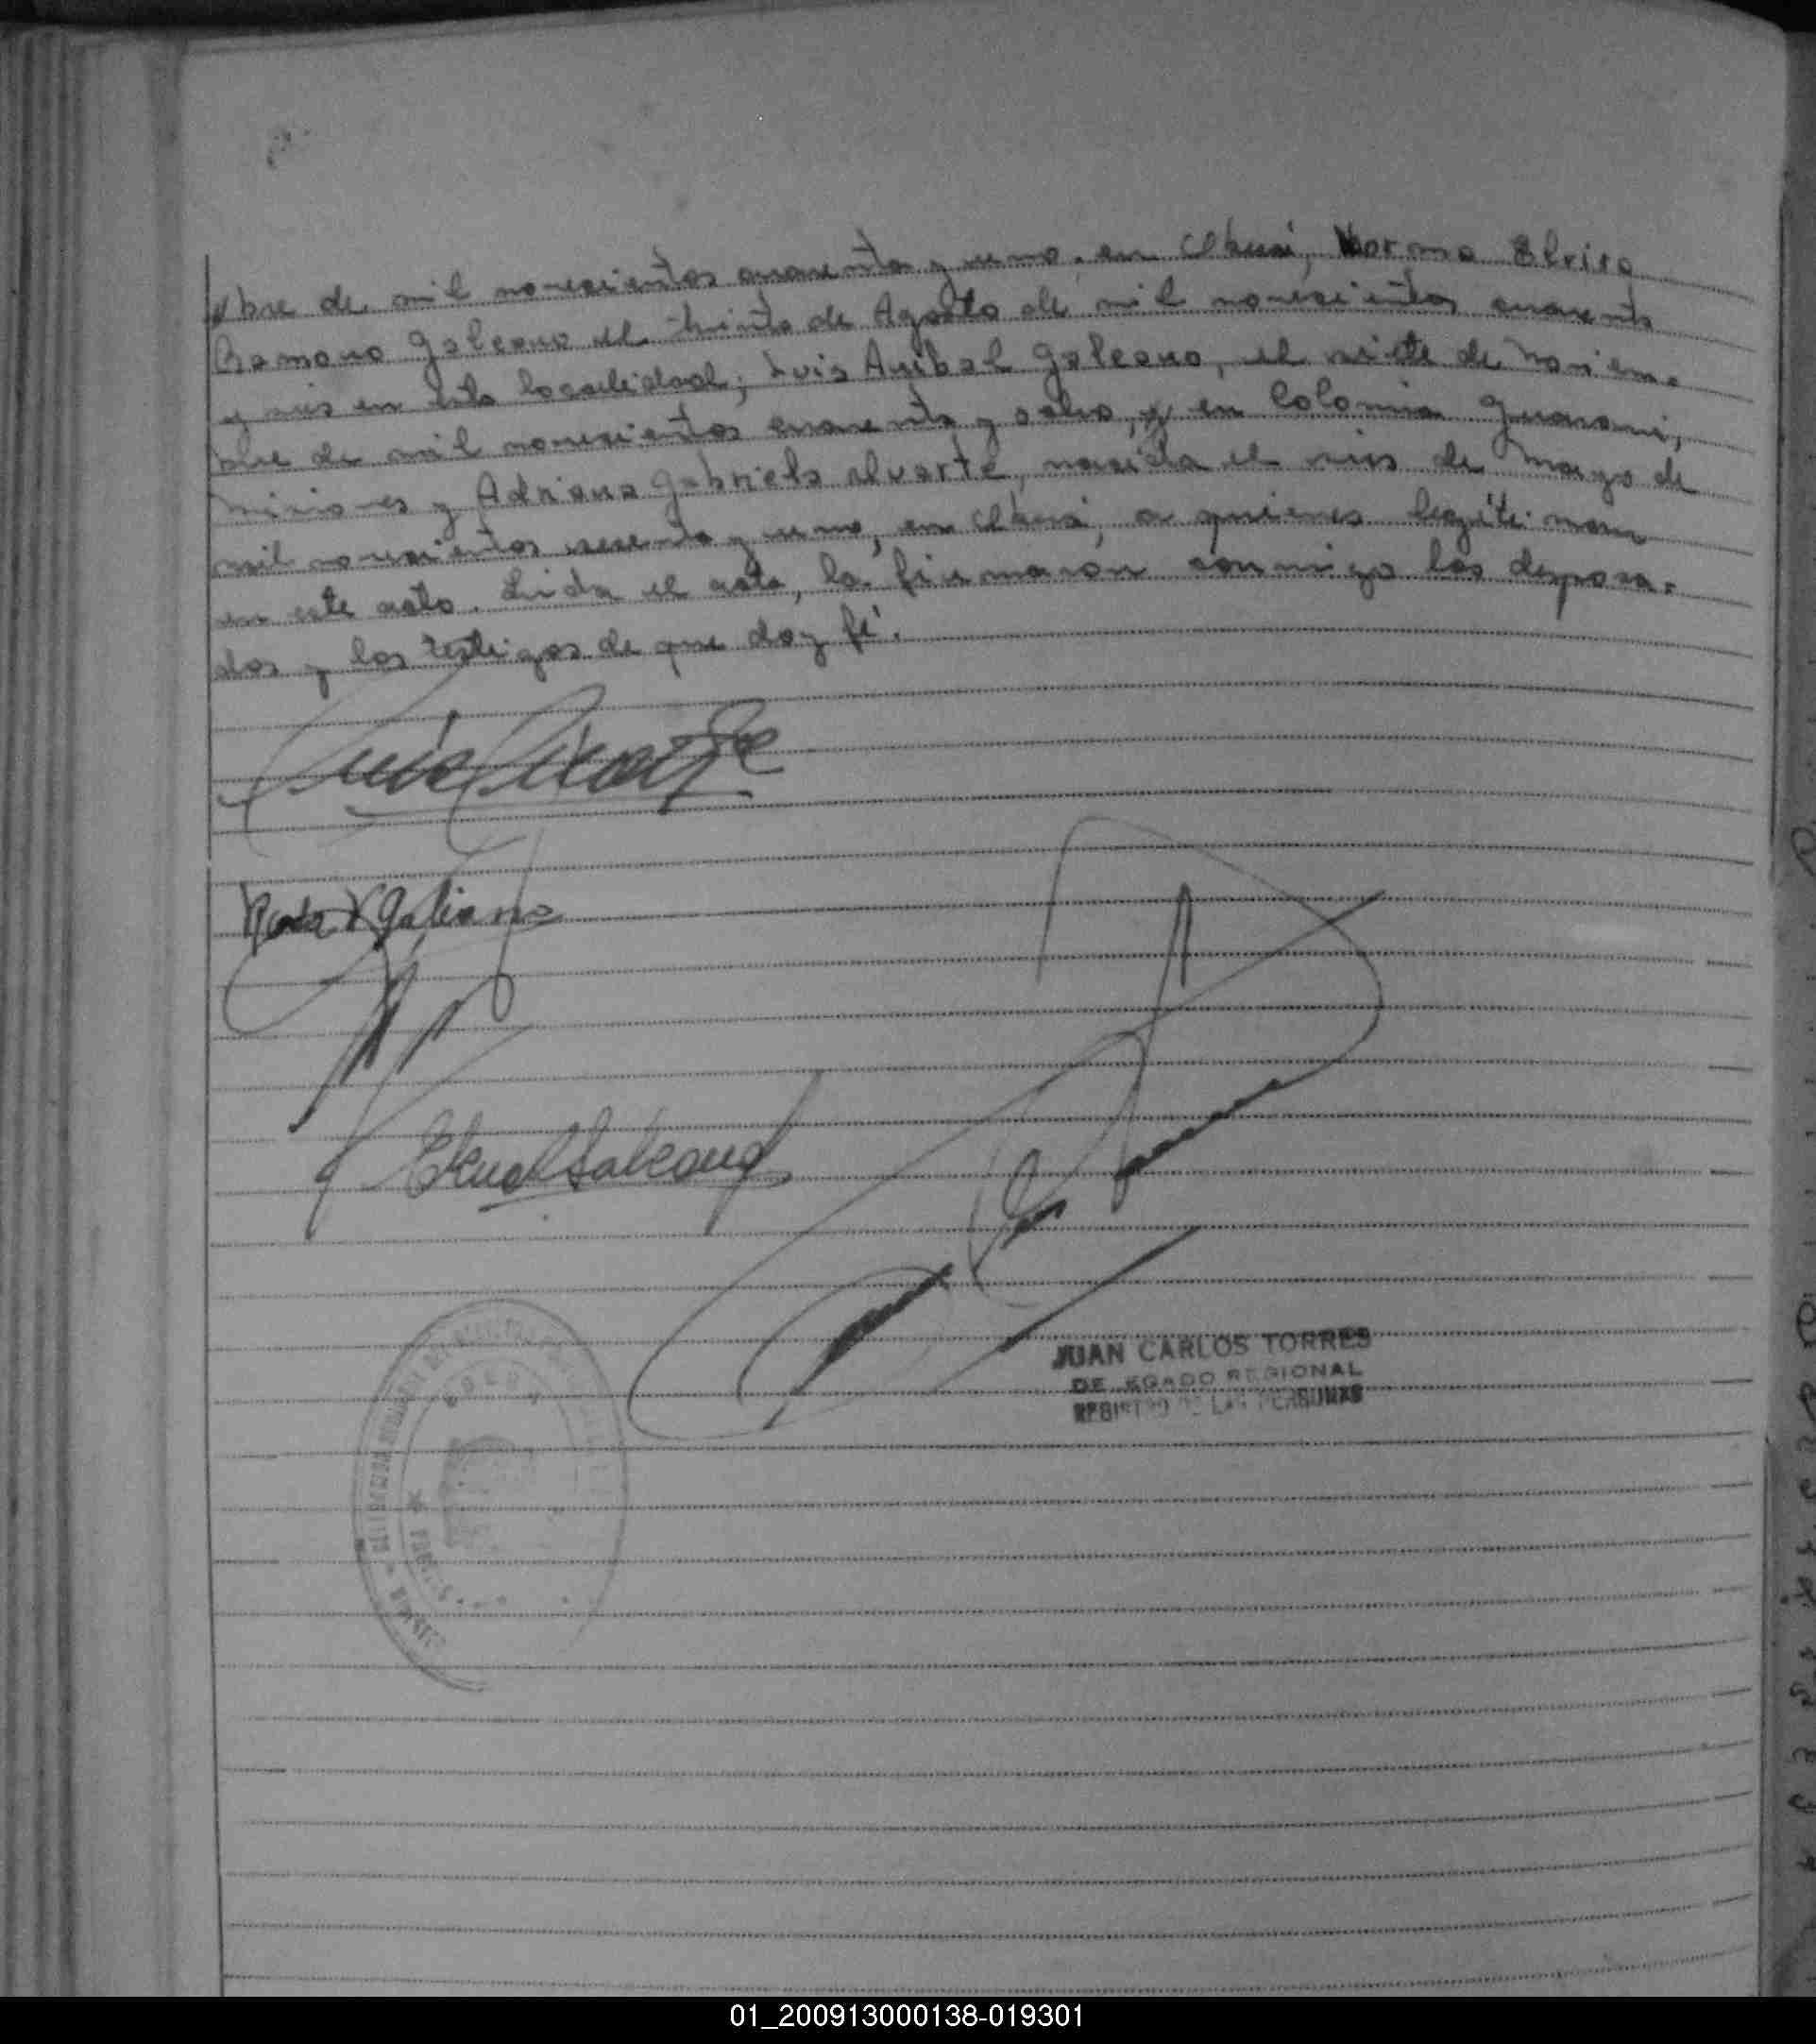 bre de mil novecientos cuarenta y uno, en Oberá, Norma Elvira
Ramona Galeano el treinta de Agosto de mil novecientos cuarenta
y seis en esta localidad; Luis Anibal Galeano, el siete de Noviem-
bre de mil novecientos cuarenta y ocho, en Colonia Guaraní,
Misiones y Adriana Gabriela Duarte, nacida el seis de Mayo de
mil novecientos sesenta y uno, en Oberá, a quienes legitiman
en este acto. Leida el acta, la firmaron conmigo los desposa-
dos y los testigos de que doy fé.
Galeano
Galeano
JUAN CARLOS TORRES
DELEGADO REGIONAL
REGISTRO DE LAS PERSONAS
01_200913000138-019301